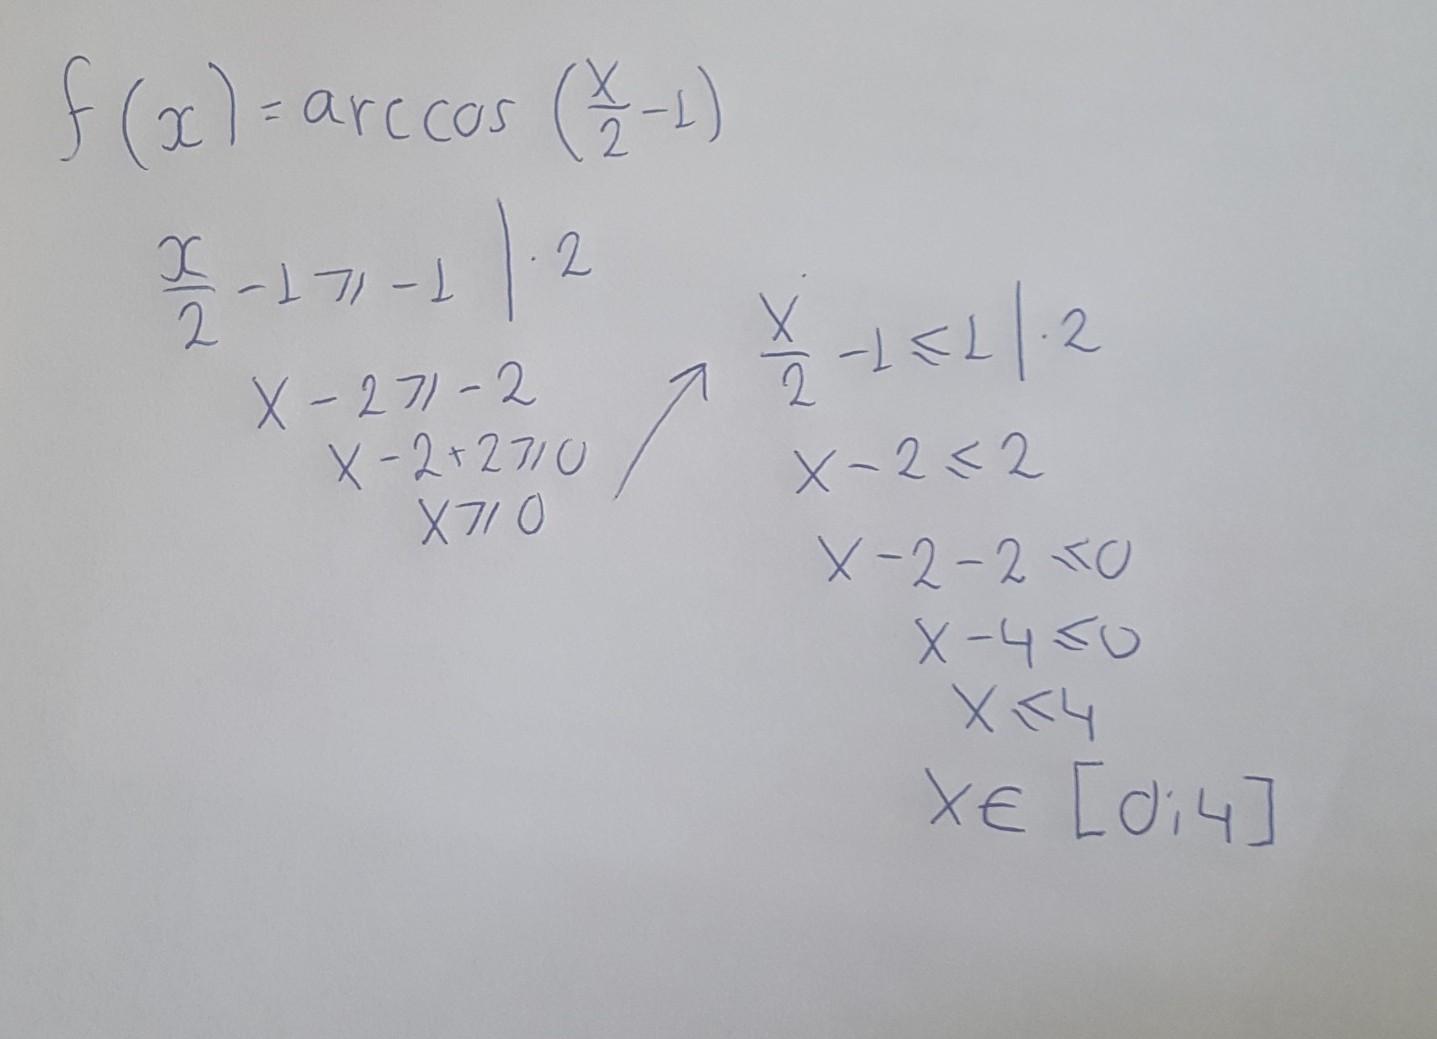 f(x) = arccos (x/2 - 1)
x/2 - 1 ⩾ -1 | · 2
x - 2 ⩾ -2
x - 2 + 2 ⩾ 0
x ⩾ 0
x/2 - 1 ⩽ 1 | · 2
x - 2 ⩽ 2
x - 2 - 2 ⩽ 0
x - 4 ⩽ 0
x ⩽ 4
x ∈ [0; 4]